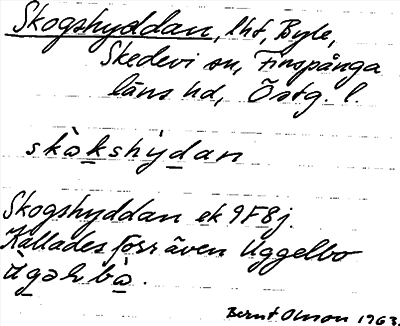 Skogshyddan, lht, Byle,
Skedevi sn, Finspånga
läns hd, Östg. l.
skòg̱kshy̍ḏan
Skogshyddan ek 9F8j.
Kallades förr även Uggelbo
Bernt Olsson 1963.